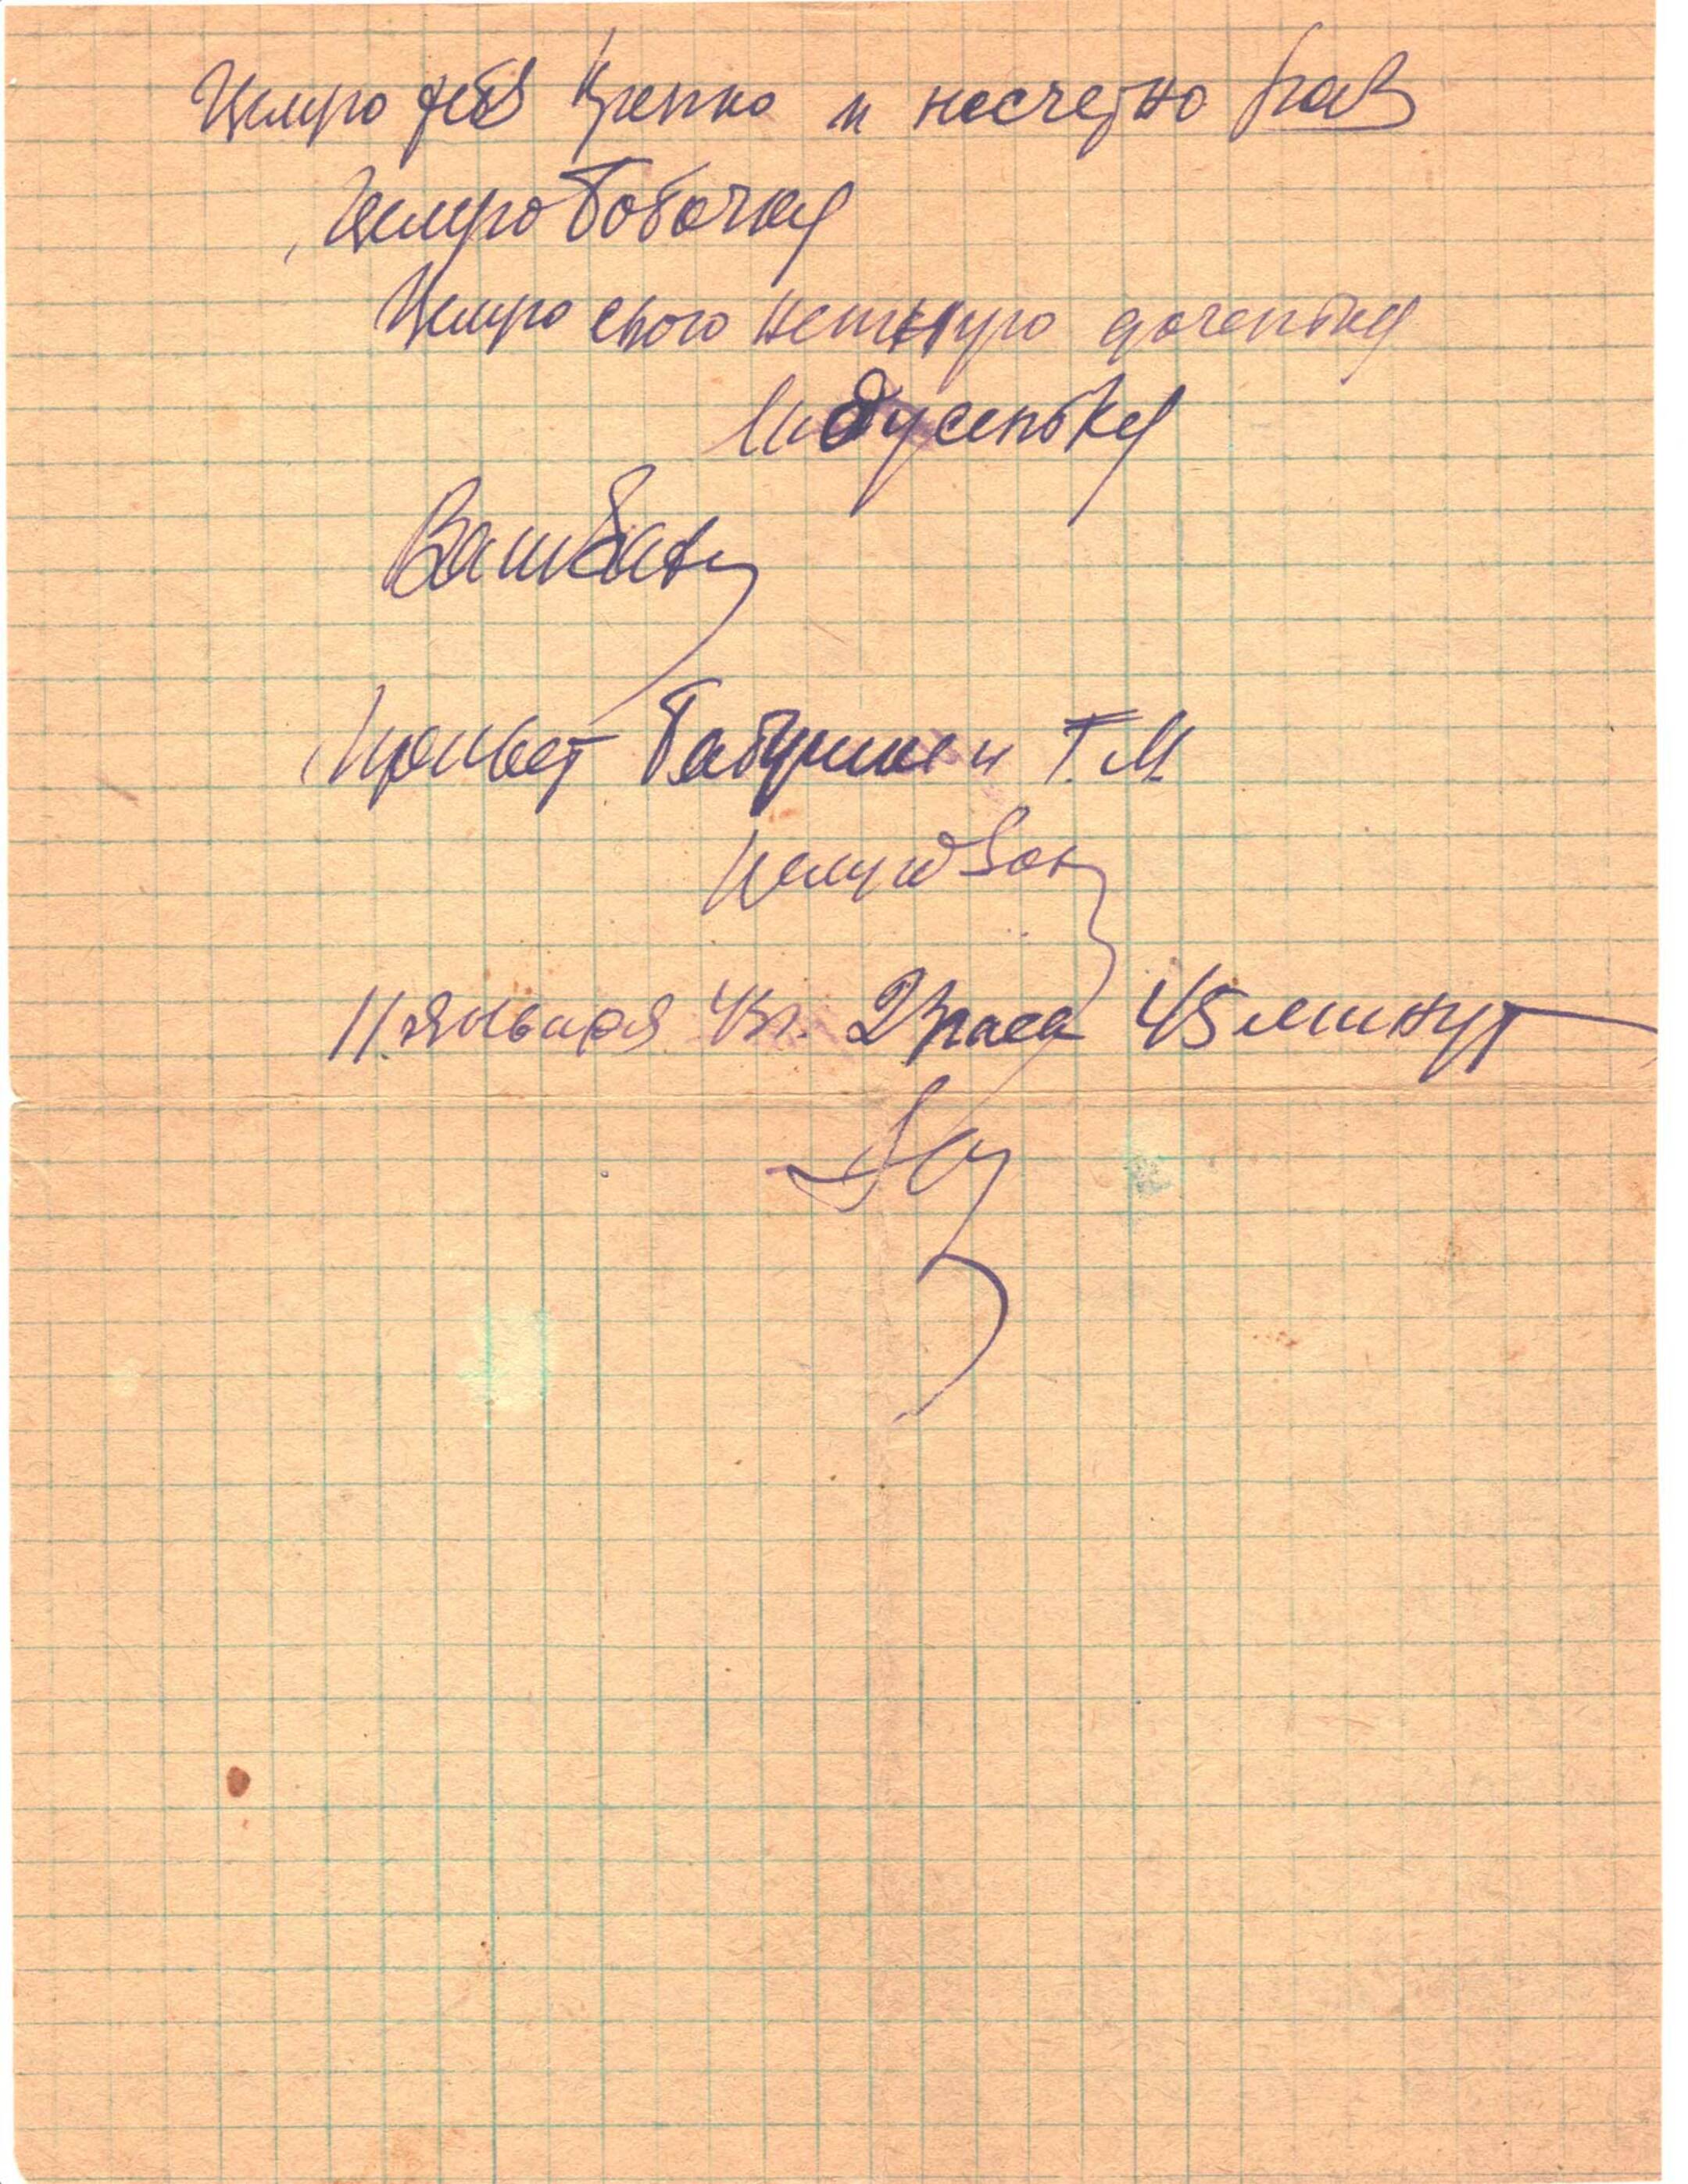 Целую тебя крепко и несчетно раз
Целую Бобочку
Целую свою нежную доченьку
Лидусеньку
Ваш
Привет Бабушке и Т.М.
Целую Вас
11 января 43г. 2 часа 45 минут